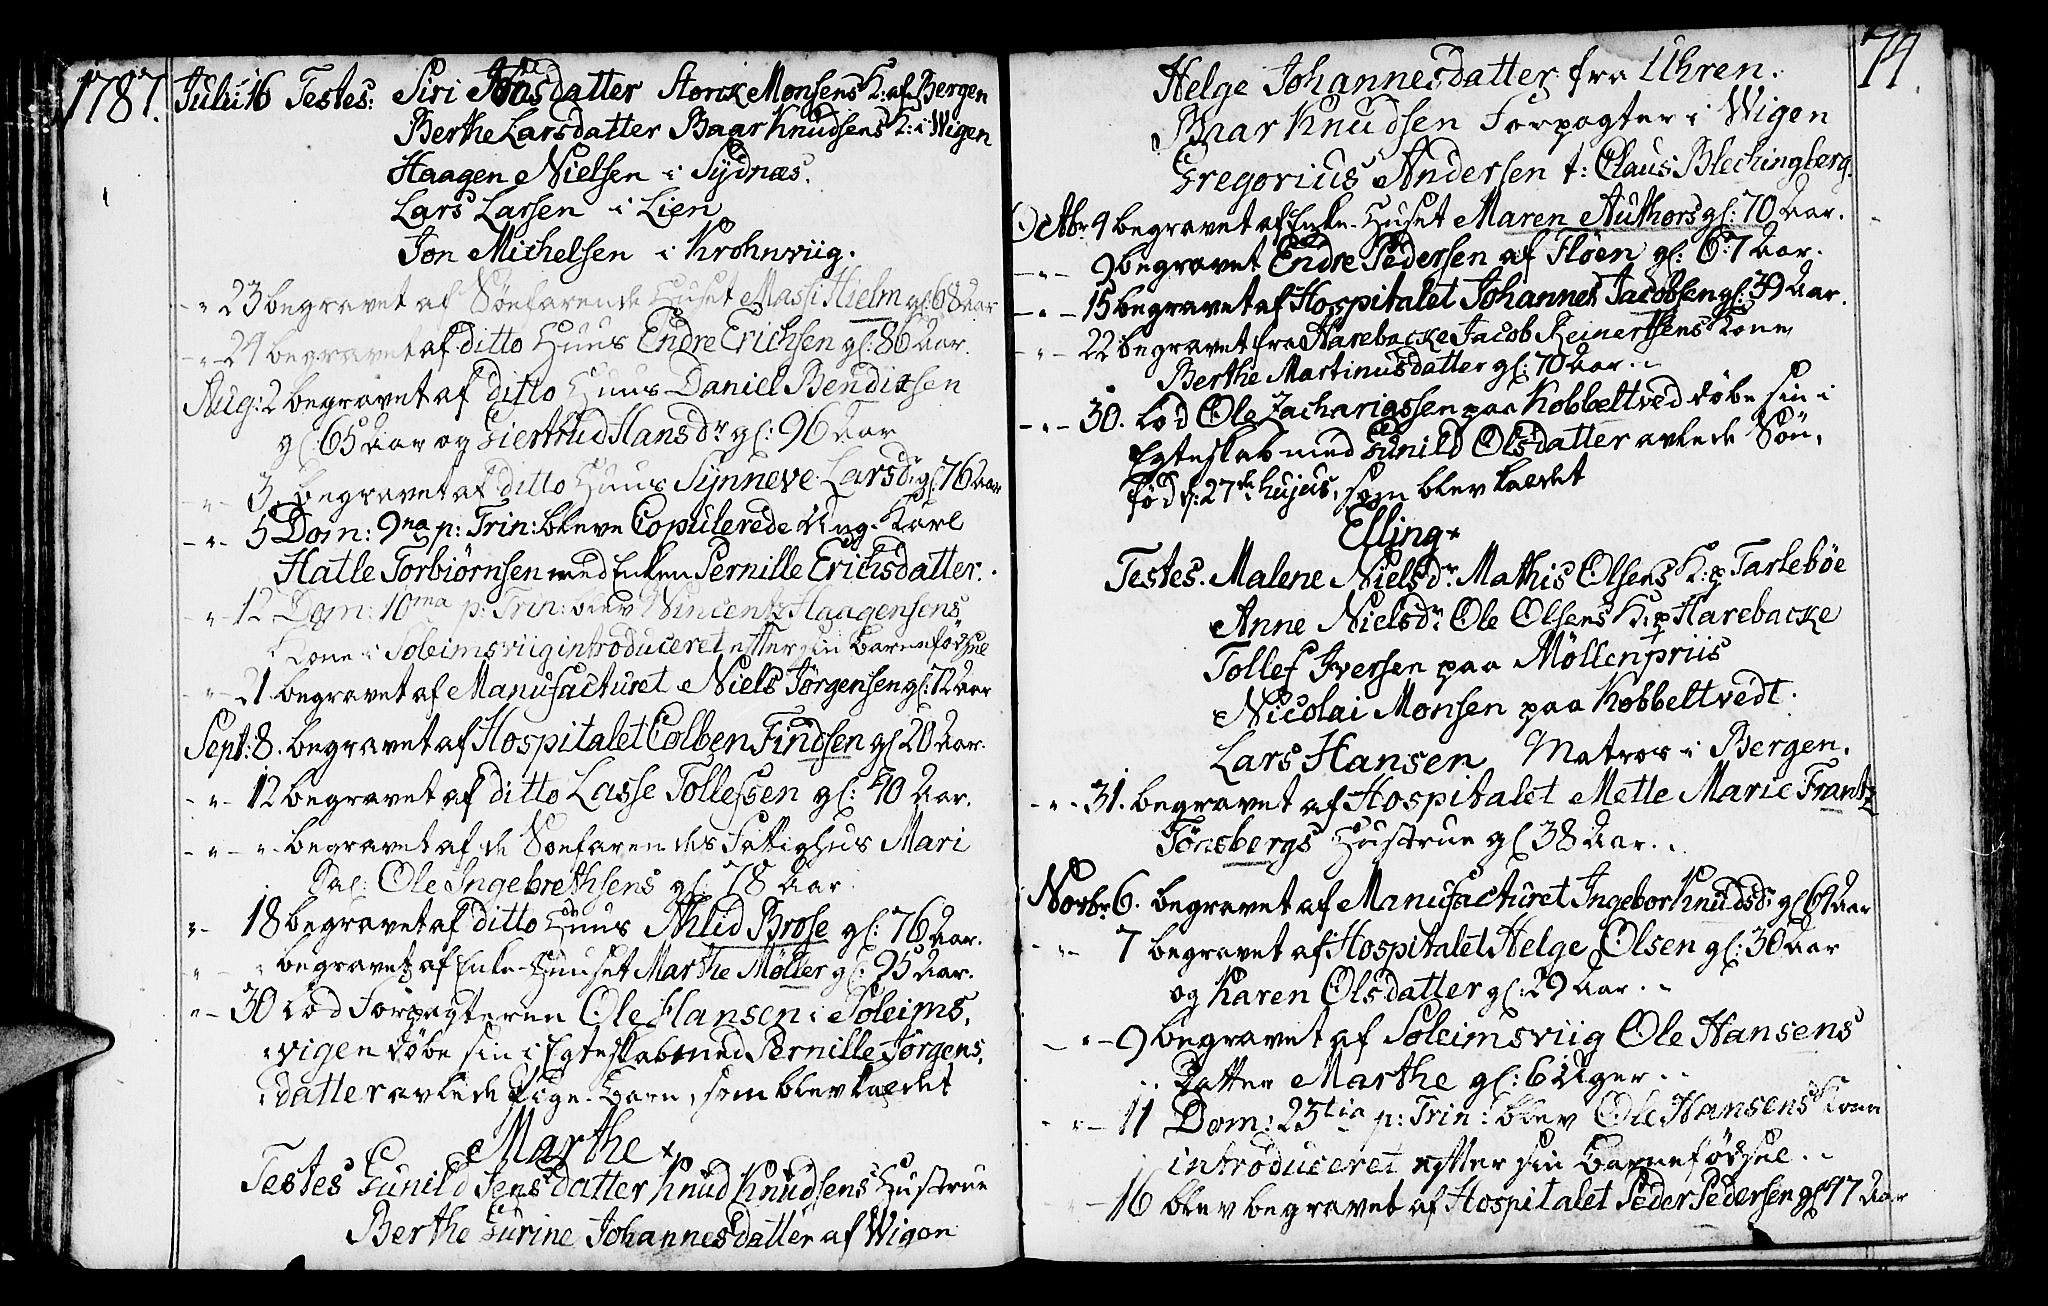 1787. Julii 16 Testes: Siri Jonsdatter Storck Monsens K: af Bergen
Berthe Larsdatter Baar Knudsens K: i Wigen
Haagen Nielsen i Sydnæs.
Lars Larsen i Lien
Jon Michelsen i Krohnviig.
-"- 23 begravet af Søefarende Huset Massi Hielm gl: 68 Aar
-"- 24 begravet af ditto Huus Endre Erichsen gl: 86 Aar.
Aug: 2 begravet af ditto Huus Daniel Bendixsen
gl: 65 Aar og Giertrud Hansdr gl: 96 Aar
-"- 3. begravet af ditto Huus Synneve Larsdr gl: 76 Aar
-"- 5 Dom: 9na p: Trin: bleve Copulerede Ung-Karl
Hatle Torbiørnsen med Enken Pernille Erichsdatter.
" 12 Dom: 10ma p: Trin: blev Vincentz Haagensens
Kone i Soleimsviig introduceret efter sin Barnefødsel
-"- 21 begravet af Manufacturet Niels Jørgensen gl: 72 Aar
Sept: 8. begravet af Hospitalet Colben Findsen gl 20 Aar.
-"- 12 begravet af ditto Lasse Tollefsen gl: 40 Aar.
-"- " begravet af de Søefarendes Fattighus Mari
Sal: Ole Ingebrethsens gl: 78 Aar
"- 18 begravet af ditto Huus Ahlid Brose gl: 76 Aar.
" " begravet af Enke-Huuset Marthe Møller gl: 95 Aar.
"- 30 Lod Forpagteren Ole Hansen i Soleims,
vigen døbe sin i Egteskab med Pernille Jørgens,
datter avlede Pige-Barn, som blev kaldet
Marthe
Testes Gunild Jensdatter Knud Knudsens Hustrue
Berthe Gurine Johannesdatter af Wigen
74.
Helge Johannesdatter fra Uhren.
Baar Knudsen Forpagter i Wigen
Gregorius Andersen t: Claus Blechingberg.
Octbr 4 begravet af Enke-Huset Maren Authors gl: 70 Aar.
-"- 9 begravet Endre Pedersen af Fløen gl: 67 Aar.
-"- 15 begravet af Hospitalet Johannes Jacobsen gl: 39 Aar.
-"- 22 begravet fra Harebacke Jacob Reinertsens Kone
Berthe Martinusdatter gl: 70 Aar.
-"- 30. Lod Ole Zachariassen paa Kobbeltved døbe sin i
Egteskab med Gunild Olsdatter avlede Søn,
fød d: 27de hujus, som blev kaldet
Elling
Testes. Malene Nielsdr Mathis Olsens K: p Tarlebøe
Anne Nielsdr Ole Olsens K: p Harebacke
Tollef Iversen paa Möllenpriis
Nicolai Monsen paa Kobbeltvedt.
Lars Hansen Matros i Bergen.
-"- 31. begravet af Hospitalet Mette Marie Frantz
Tönsbergs Hustrue gl 38 Aar.
Novbr 6. begravet af Manufacturet Ingebor Knudsdr gl 64 Aar
-"- 7 begravet af Hospitalet Helge Olsen gl: 30 Aar
og Karen Olsdatter gl: 29 Aar.
-"- 9 begravet af Soleimsviig Ole Hansens
Datter Marthe gl: 6 Uger.
-"- 11 Dom: 23tia p: Trin: blev Ole Hansens Kone
introduceret efter sin Barnefødsel.
- 16 blev begravet af Hospitalet Peder Pedersen gl: 47 Aar